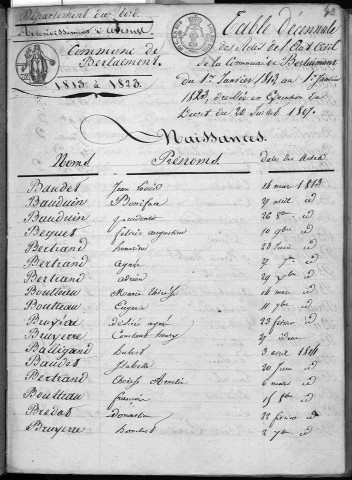 Département du Nord
Arrondissement d'avesnes
Commune de
Berlaimont.
1813 à 1823.
Table Décennale
des Actes de l'Etat Civil
de la Commune de Berlaimont
du 1er Janvier 1813 au 1er Janvier
1823, dressée en Exécution du
Décret du 20 Juillet 1807.
Naissances.
Noms Prénoms Dates des Actes
Baudet Jean Louis 14 mars 1813
Bauduin Boniface 7 avril id
Bauduin 26 8bre id
Bequet félix augustin 10 9bre id
Bertrand honorine 28 Juin id
Bertrand agnès id
Bertrand adrien 29 id
Boutteau Marie thérèse 16 mai id
Boutteau Eugène 11 7bre id
Bruyère désiré 23 février id
Bruyerre Constant henry id
Baligand hubert 3 avril 1814
Baudet Isabelle 20 Juin id
Bertrand thérèse Amélie 6 mars id
Boutteau françois 15 8bre id
Bredat donatien 22 février id
Bruyerre humbert 2 7bre id